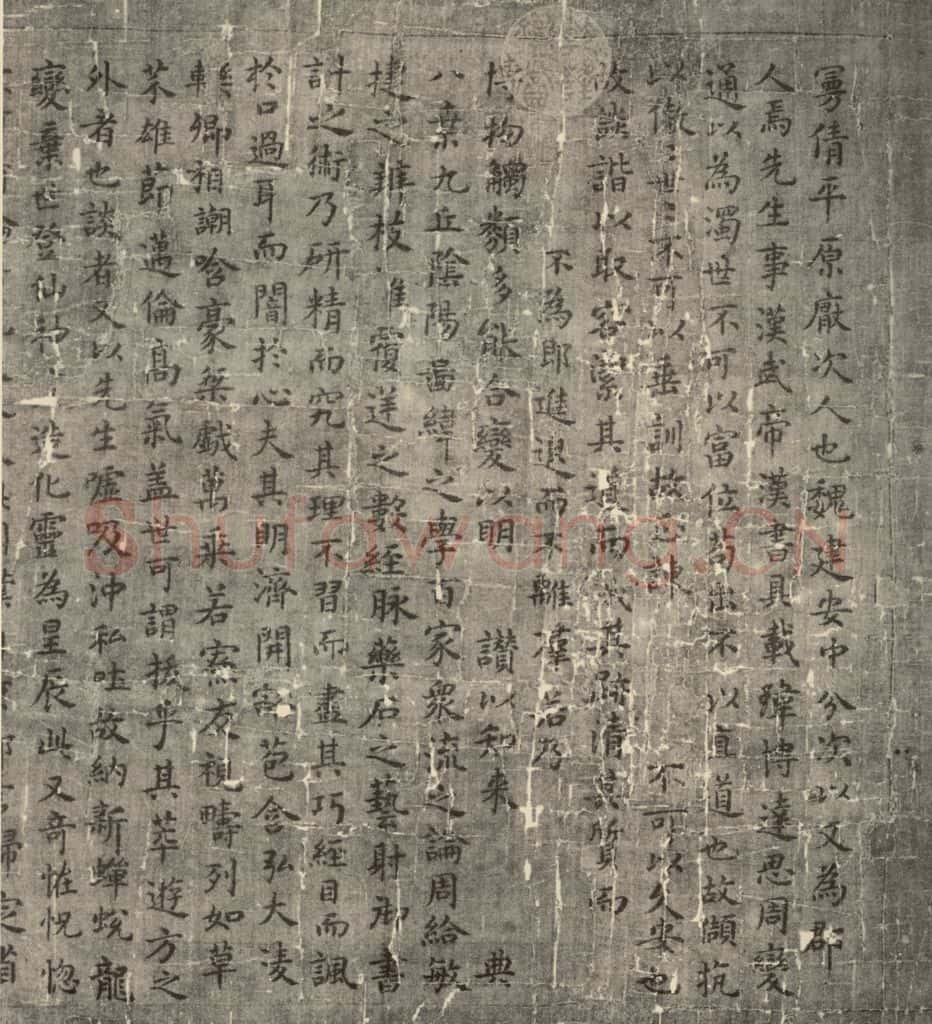 曼倩平原厭次人也魏建安中分次以又為郡
人焉先生事漢武帝漢書具載瑋博達思周變
通以為濁世不可以富位苟出不以直道也故頡抗
以傲〻世〻不可以垂訓故正諫不可以久安也
故詼諧以取容潔其道而穢其跡清其質而
不為耶進退而不離若乃
博物觸類多能合變以明讚以知來典
八索九丘陰陽圖緯之學百家衆流之論周給敏
捷之辨枝離覆逆之數經脉藥石之藝射御書
計之術乃研精而究其理不習而盡其巧經目而諷
於口過耳而闇於心夫其明濟開豁苞含弘大淩
轢卿相謿哈豪桀戲萬乘若寮友視疇列如草
芥雄節邁倫高氣盖世可謂拔乎其萃遊方之
外者也談者又以先生嘘吸沖和吐故納新蟬蛻龍
變棄世登仙神〻造化靈為星辰此又奇怪恍惚
Shufawang.cn